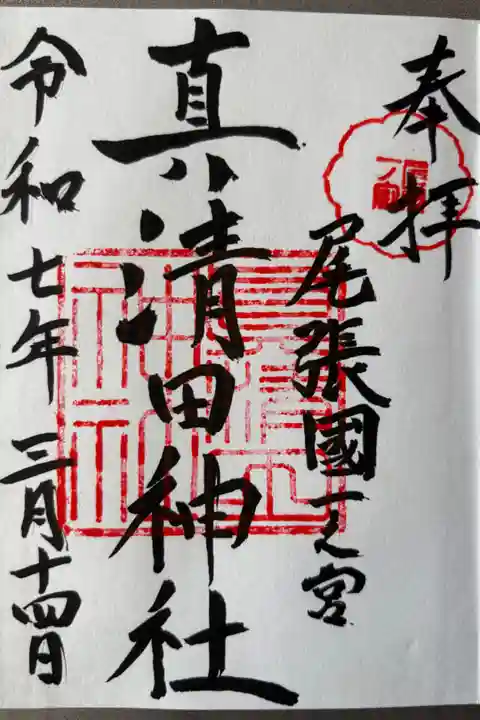 奉拝
尾張國一之宮
真清田神社
令和七年三月十四日